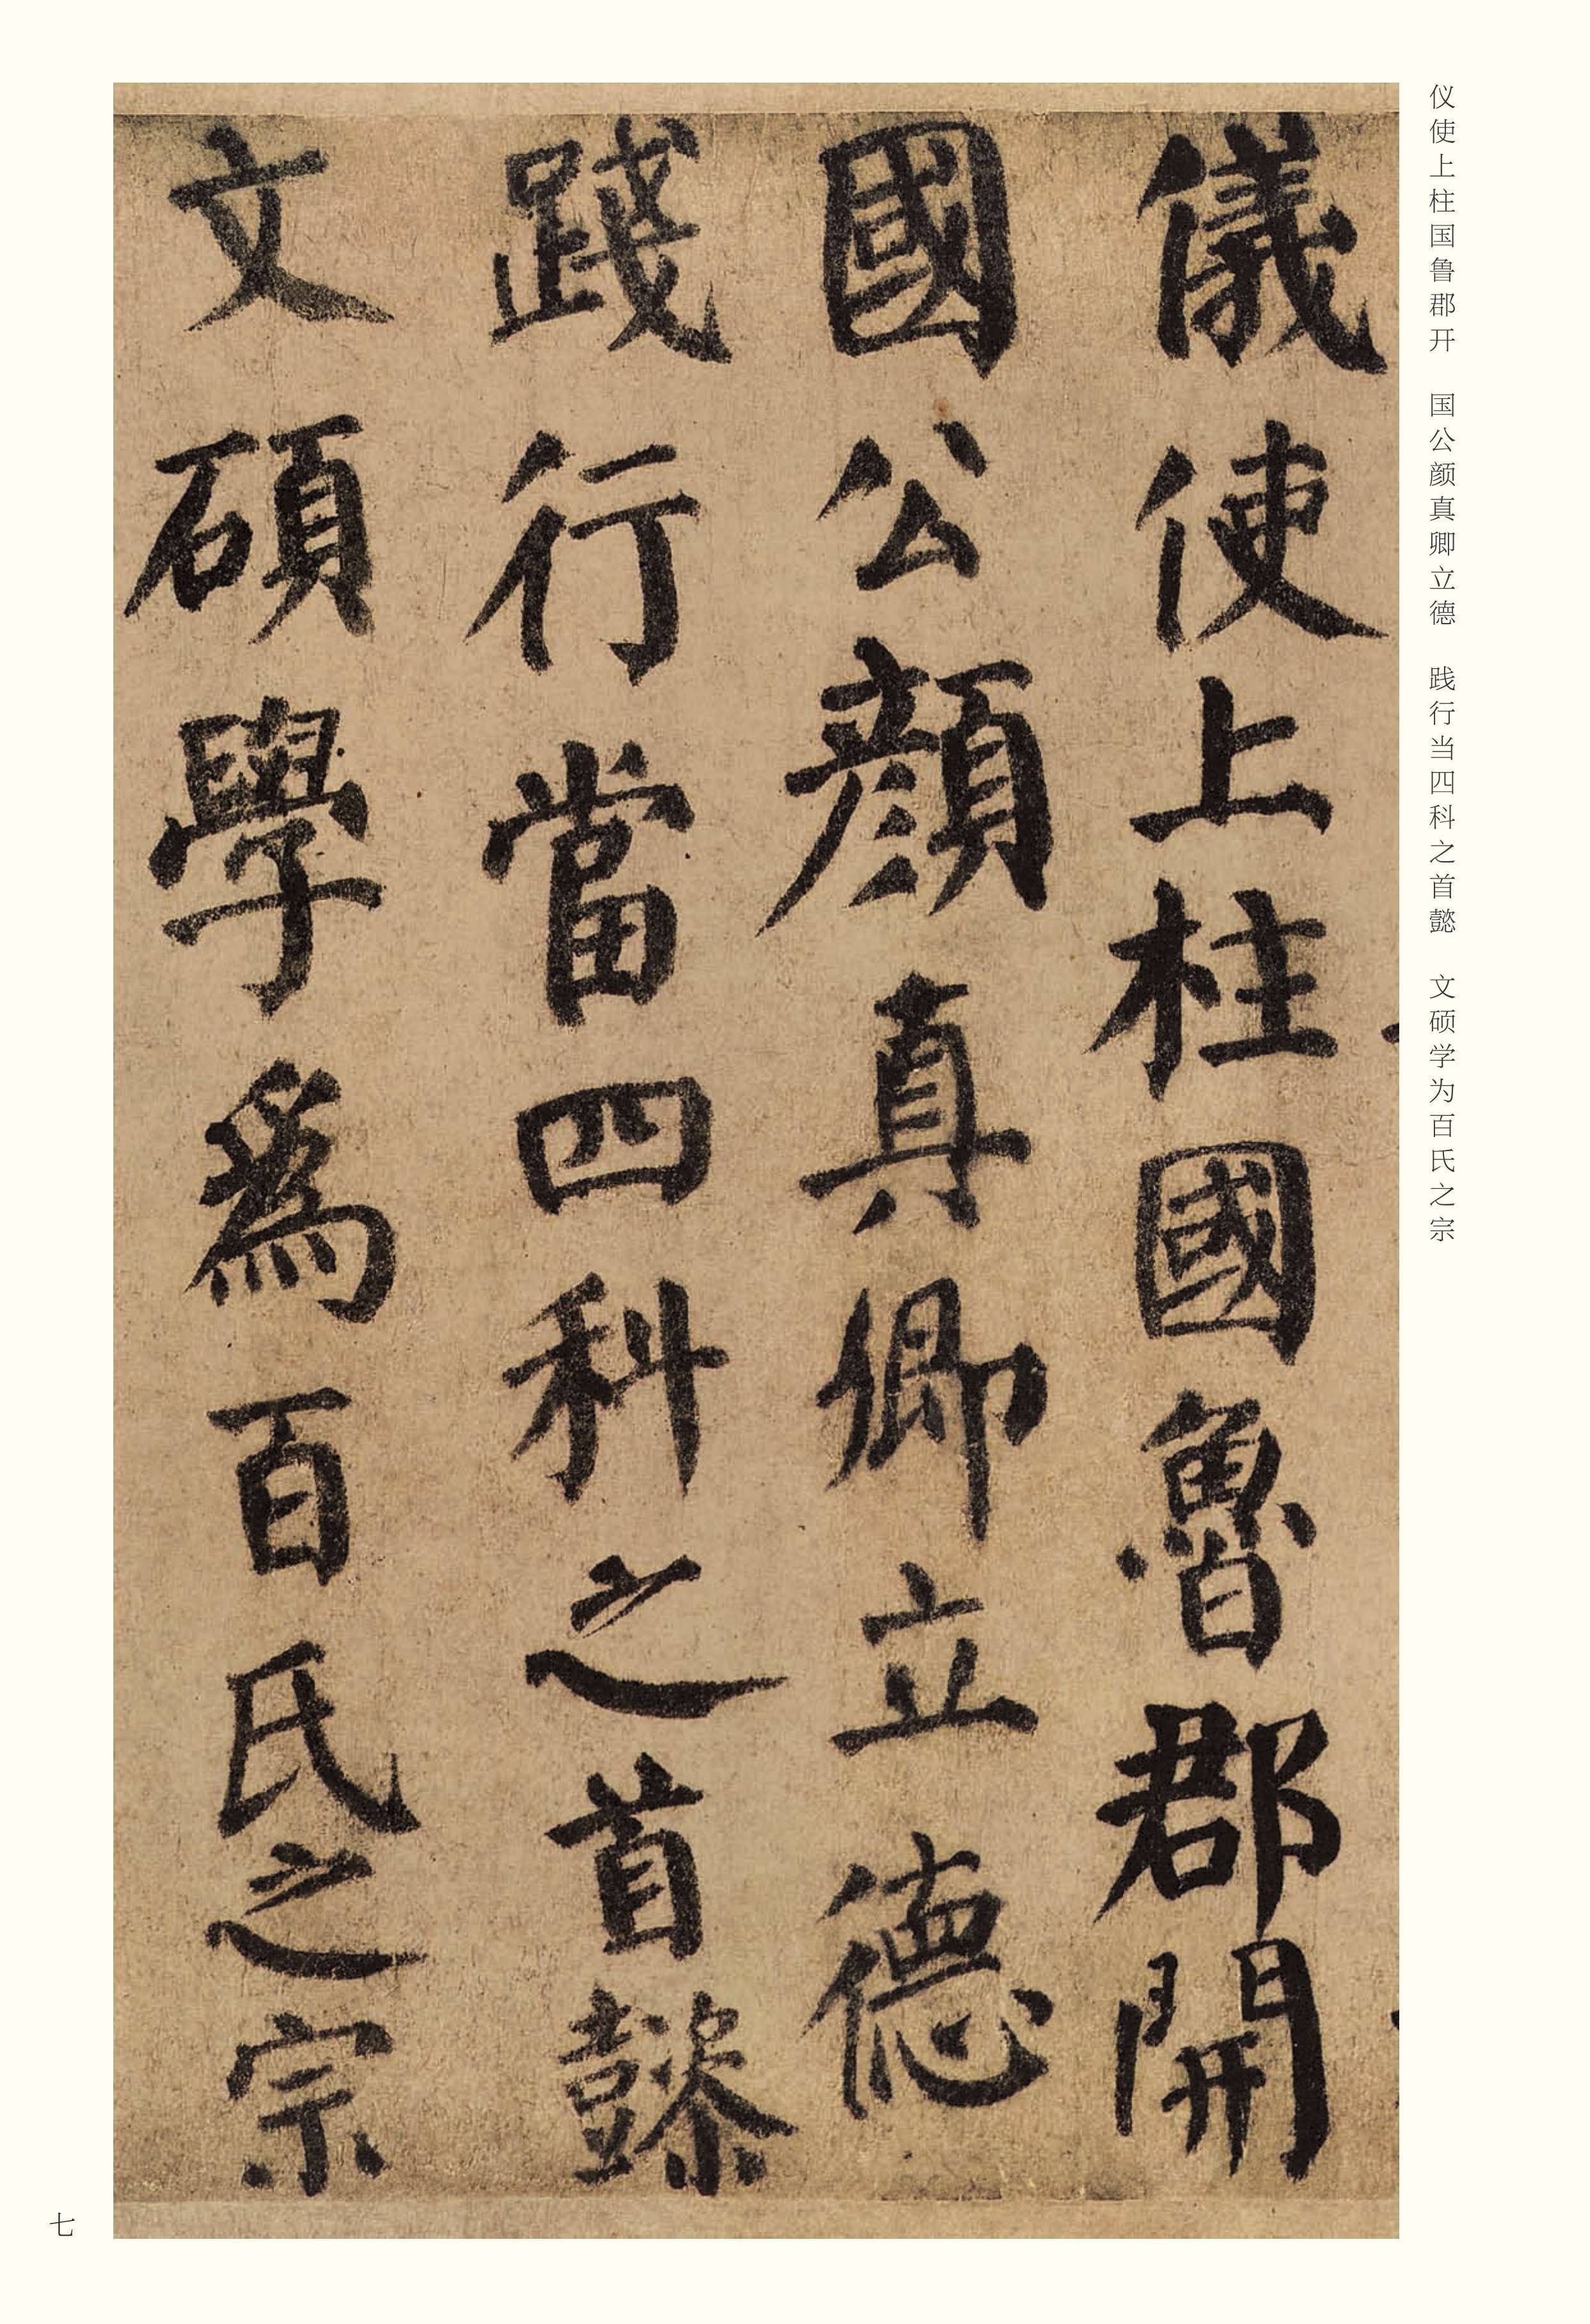 仪使上柱国鲁郡开　国公颜真卿立德　践行当四科之首懿　文硕学为百氏之宗
儀使上柱國魯郡開
國公顔真卿立德
踐行當四科之首懿
文碩學爲百氏之宗
七